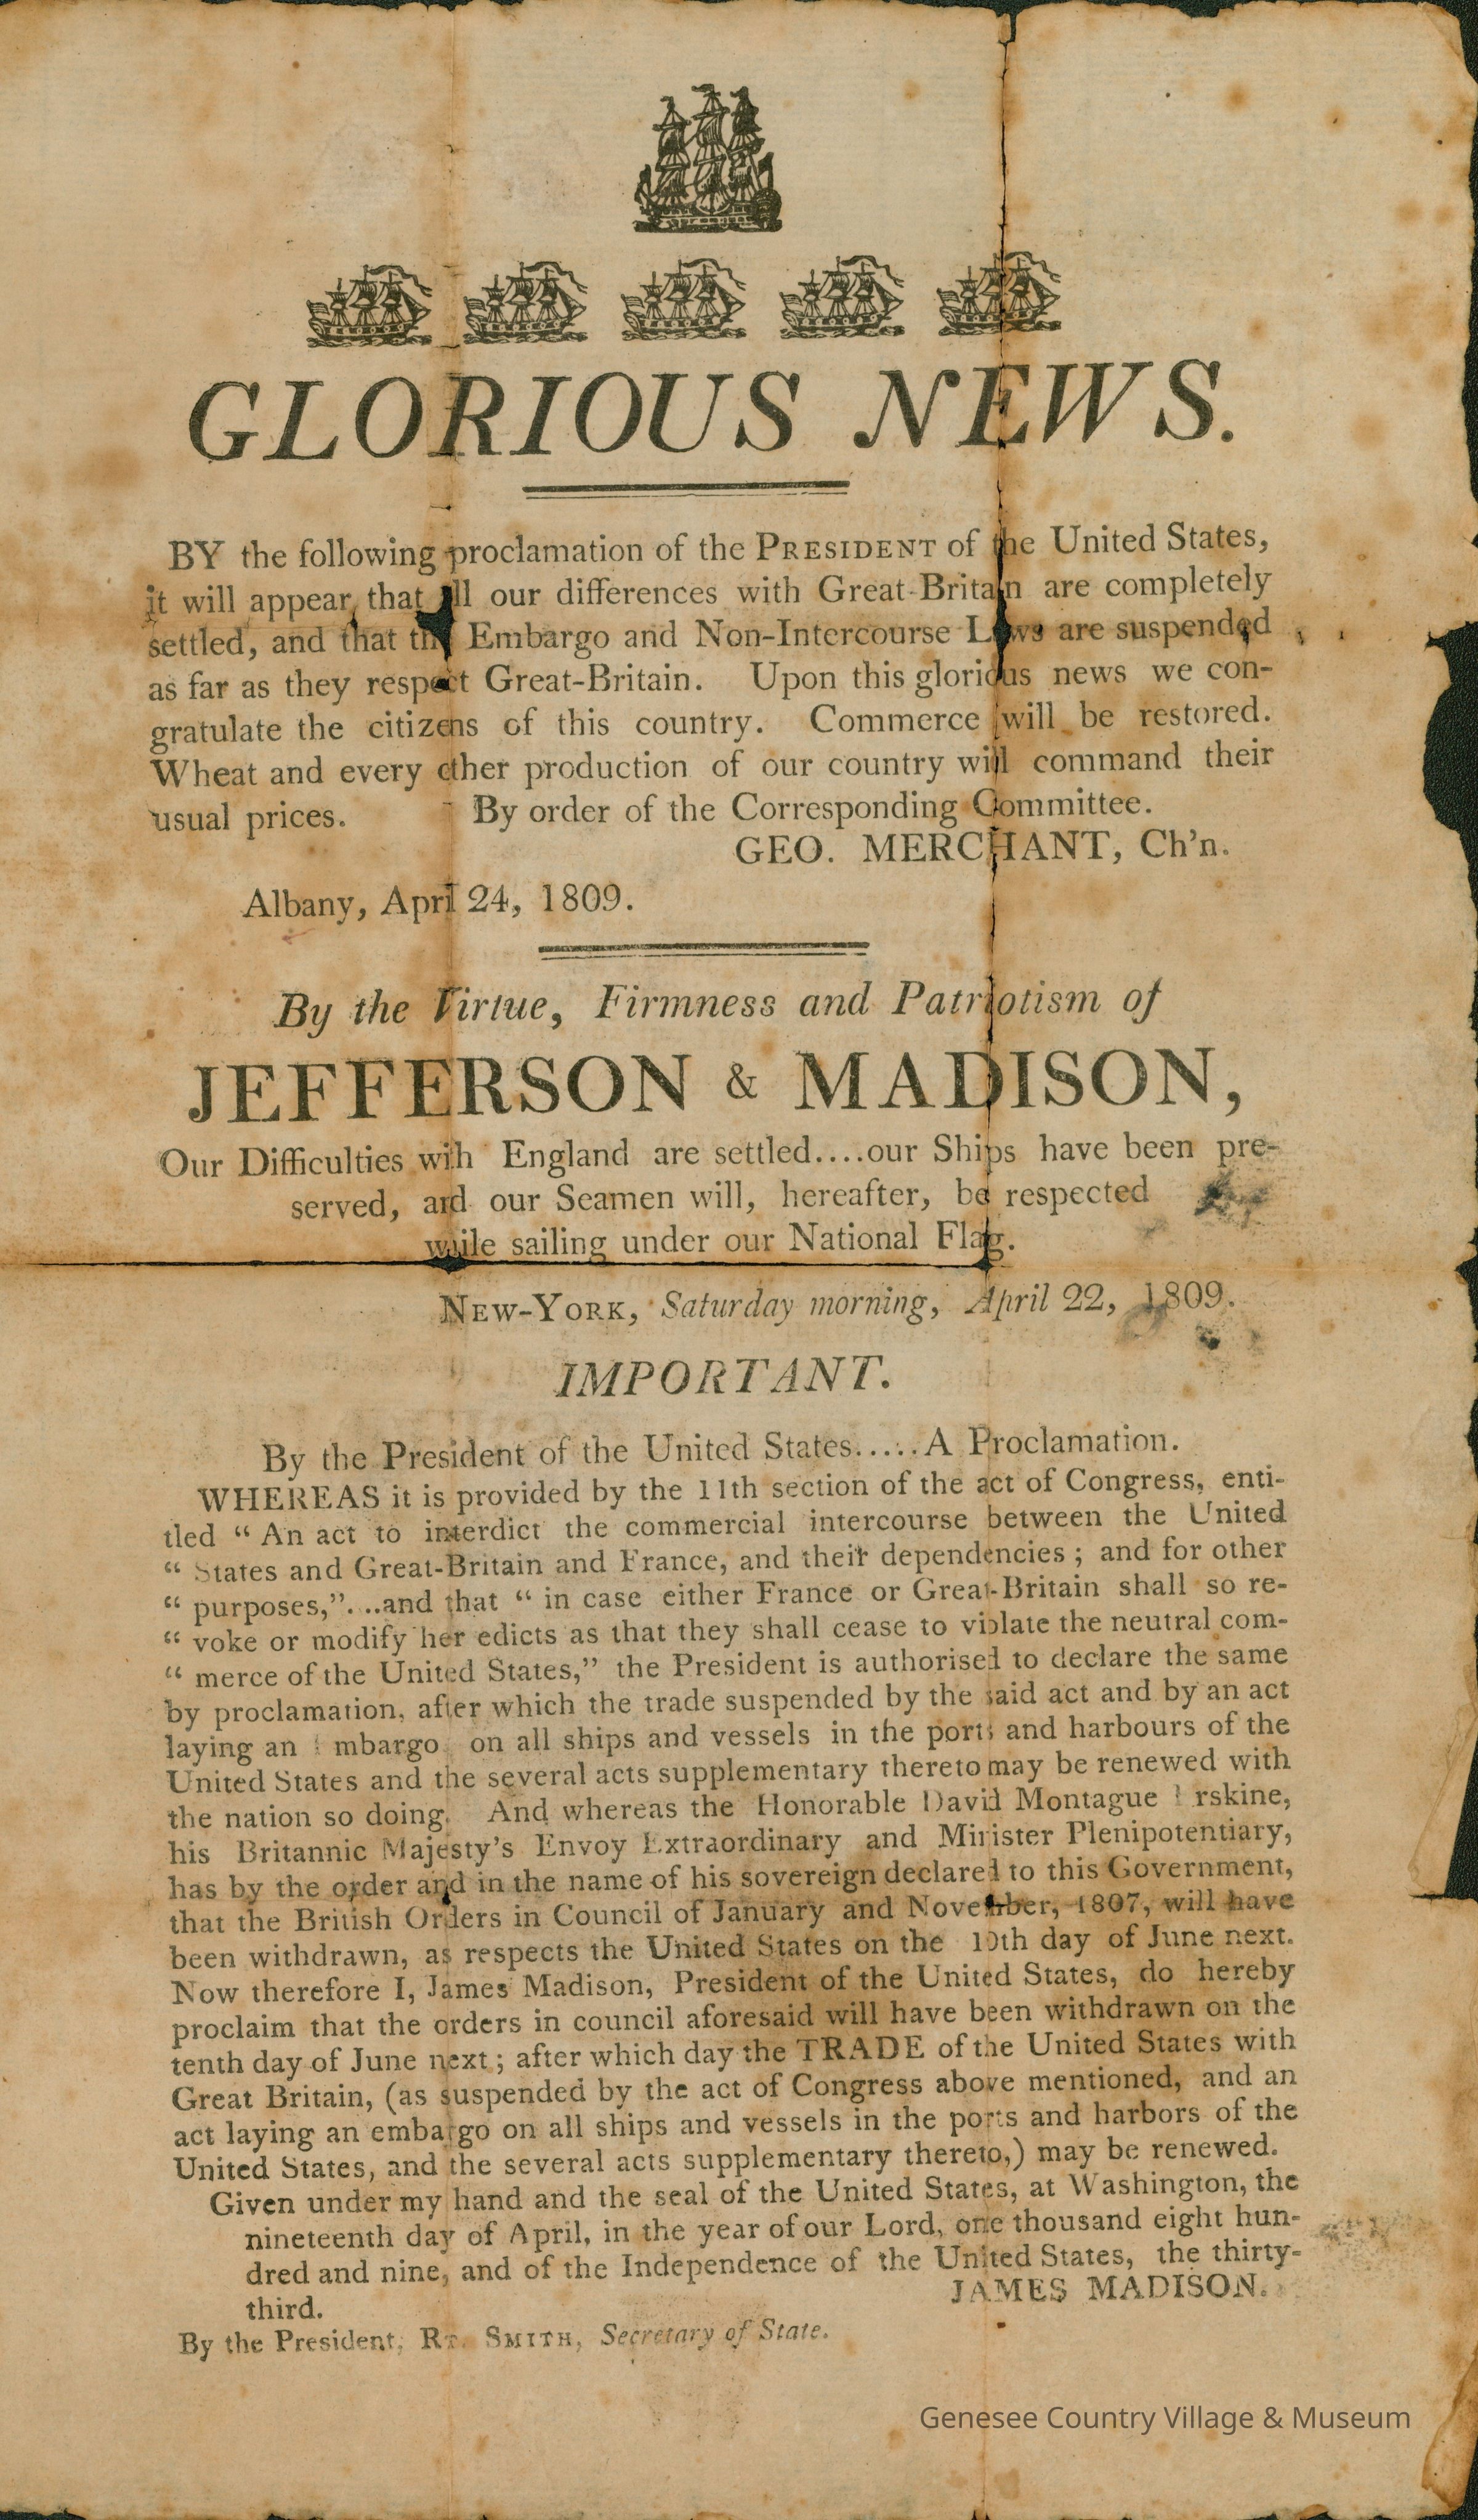 GLORIOUS NEWS.
BY the following proclamation of the PRESIDENT of the United States,
it will appear, that all our differences with Great-Britain are completely
settled, and that the Embargo and Non-Intercourse Laws are suspended
as far as they respect Great-Britain. Upon this glorious news we con-
gratulate the citizens of this country. Commerce will be restored.
Wheat and every other production of our country will command their
usual prices. By order of the Corresponding Committee.
GEO. MERCHANT, Ch'n.
Albany, April 24, 1809.
By the Virtue, Firmness and Patriotism of
JEFFERSON & MADISON,
Our Difficulties with England are settled....our Ships have been pre-
served, and our Seamen will, hereafter, be respected
while sailing under our National Flag.
NEW-YORK, Saturday morning, April 22, 1809.
IMPORTANT.
By the President of the United States.....A Proclamation.
WHEREAS it is provided by the 11th section of the act of Congress, enti-
tled " An act to interdict the commercial intercourse between the United
" States and Great-Britain and France, and their dependencies ; and for other
" purposes,"....and that " in case either France or Great-Britain shall so re-
" voke or modify her edicts as that they shall cease to violate the neutral com-
" merce of the United States," the President is authorised to declare the same
by proclamation, after which the trade suspended by the said act and by an act
laying an Embargo on all ships and vessels in the ports and harbours of the
United States and the several acts supplementary thereto may be renewed with
the nation so doing. And whereas the Honorable David Montague Erskine,
his Britannic Majesty's Envoy Extraordinary and Minister Plenipotentiary,
has by the order and in the name of his sovereign declared to this Government,
that the British Orders in Council of January and November, 1807, will have
been withdrawn, as respects the United States on the 10th day of June next.
Now therefore I, James Madison, President of the United States, do hereby
proclaim that the orders in council aforesaid will have been withdrawn on the
tenth day of June next ; after which day the TRADE of the United States with
Great Britain, (as suspended by the act of Congress above mentioned, and an
act laying an embargo on all ships and vessels in the ports and harbors of the
United States, and the several acts supplementary thereto,) may be renewed.
Given under my hand and the seal of the United States, at Washington, the
nineteenth day of April, in the year of our Lord, one thousand eight hun-
dred and nine, and of the Independence of the United States, the thirty-
third.
JAMES MADISON.
By the President, RT. SMITH, Secretary of State.
Genesee Country Village & Museum